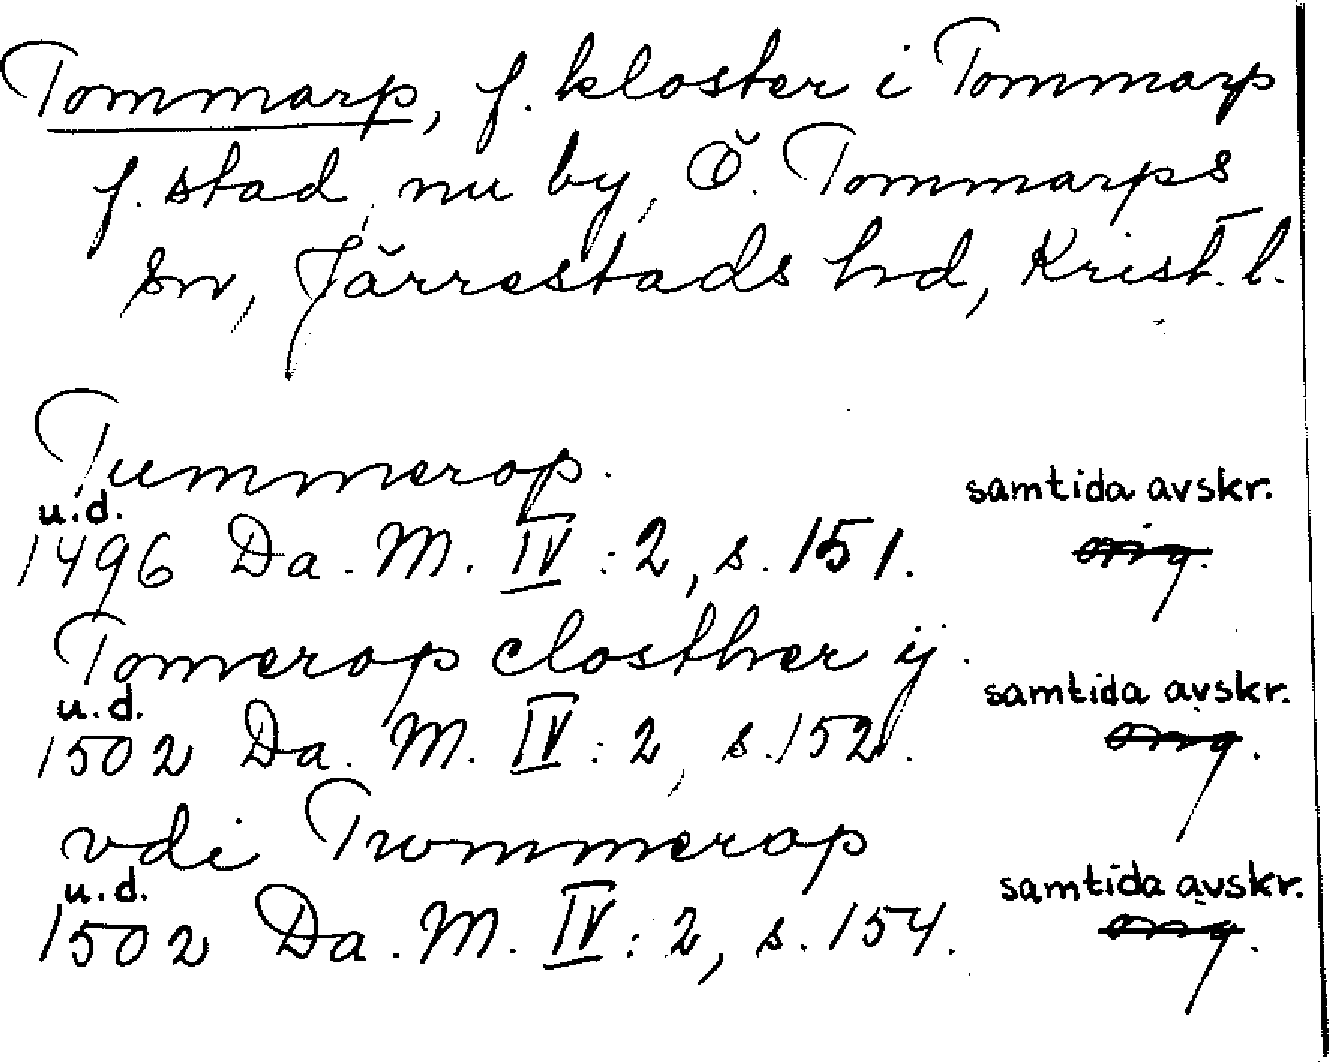 Tommarp, f. kloster i Tommarp
f. stad, nu by, Ö. Tommarps
sn, Järrestads hd, Krist. l.
Tummerop.
u.d. samtida avskr.
1496 Da. M. IV : 2, s. 151. orig.
Tomerop closther ij.
u.d. samtida avskr.
1502 Da. M. IV : 2, s. 152. orig.
vdi Twmmerop
u.d. samtida avskr.
1502 Da. M. IV : 2, s. 154. orig.